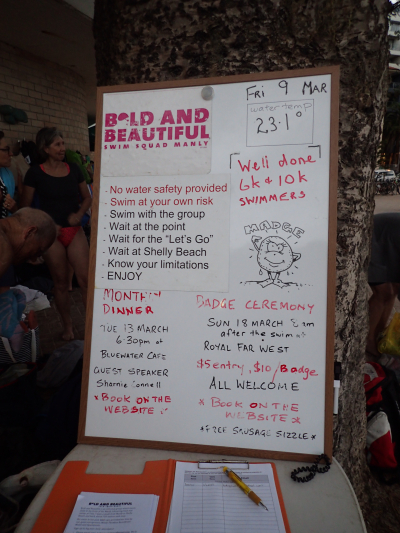 Fri 9 MAR
water temp
23.1°
BOLD AND
BEAUTIFUL
SWIM SQUAD MANLY
Well done
6k & 10k
SWIMMERS
- No water safety provided
- Swim at your own risk
- Swim with the group
- Wait at the point
- Wait for the "Let's Go"
- Wait at Shelly Beach
- Know your limitations
- ENJOY
MADGE
MONTHLY
DINNER
TUE 13 MARCH
6:30pm at
BLUEWATER CAFE
GUEST SPEAKER
Sharnie
* BOOK ON THE
WEBSITE *
BADGE CEREMONY
SUN 18 MARCH
after the swim at
ROYAL FAR WEST
$5 entry, $10/Badge
ALL WELCOME
* BOOK ON THE
WEBSITE *
* FREE SAUSAGE SIZZLE *
BOLD AND BEAUTIFUL